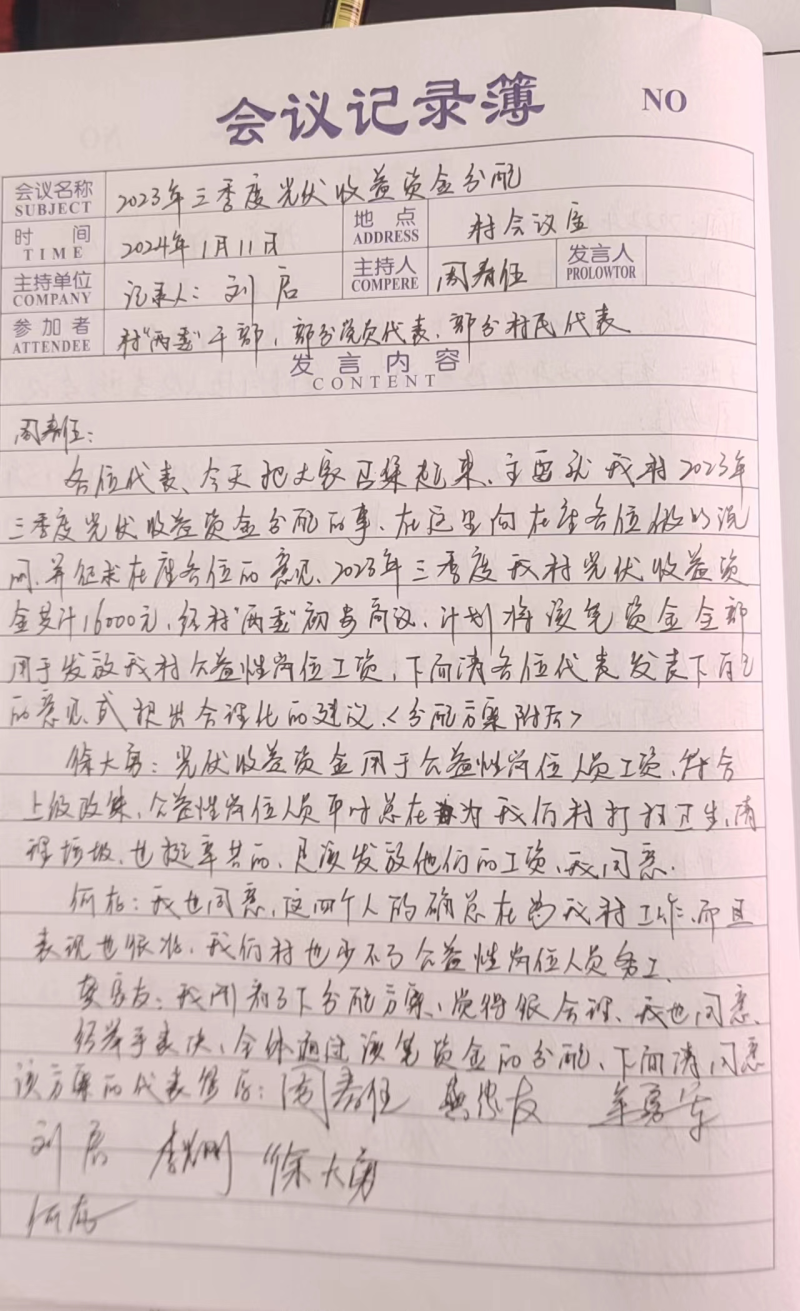 会议记录簿 NO
会议名称 SUBJECT 2023年三季度光伏收益资金分配
时间 TIME 2024年1月11日 地点 ADDRESS 村会议室
主持单位 COMPANY 记录人：刘启 主持人 COMPERE 周春伍 发言人 PROLOWTOR
参加者 ATTENDEE 村“两委”干部、部分党员代表、部分村民代表
发言内容
CONTENT
周春伍：
各位代表、今天把大家召集起来、主要就我村2023年
三季度光伏收益资金分配的事、在这里向在座各位做的说
明、并征求在座各位的意见、2023年三季度我村光伏收益资
金共计16000元，经村“两委”初步商议、计划将该笔资金全部
用于发放我村公益性岗位工资，下面请各位代表发表下自己
的意见或提出合理化的建议。<分配方案附后>
徐大勇：光伏收益资金用于公益性岗位人员工资、符合
上级政策、公益性岗位人员平时总在为我们村打扫卫生、清
理垃圾、也挺辛苦的、是该发放他们的工资、我同意.
何存：我也同意，这四个人的确总在为我村工作、而且
表现也很好、我们村也少不了公益性岗位人员务工.
友：我刚看了下分配方案、觉得很合理、我也同意、
经举手表决、全体通过该笔资金的分配、下面请同意
该方案的代表签字：周春伍 友 军
刘启 李 刚 徐大勇
何存